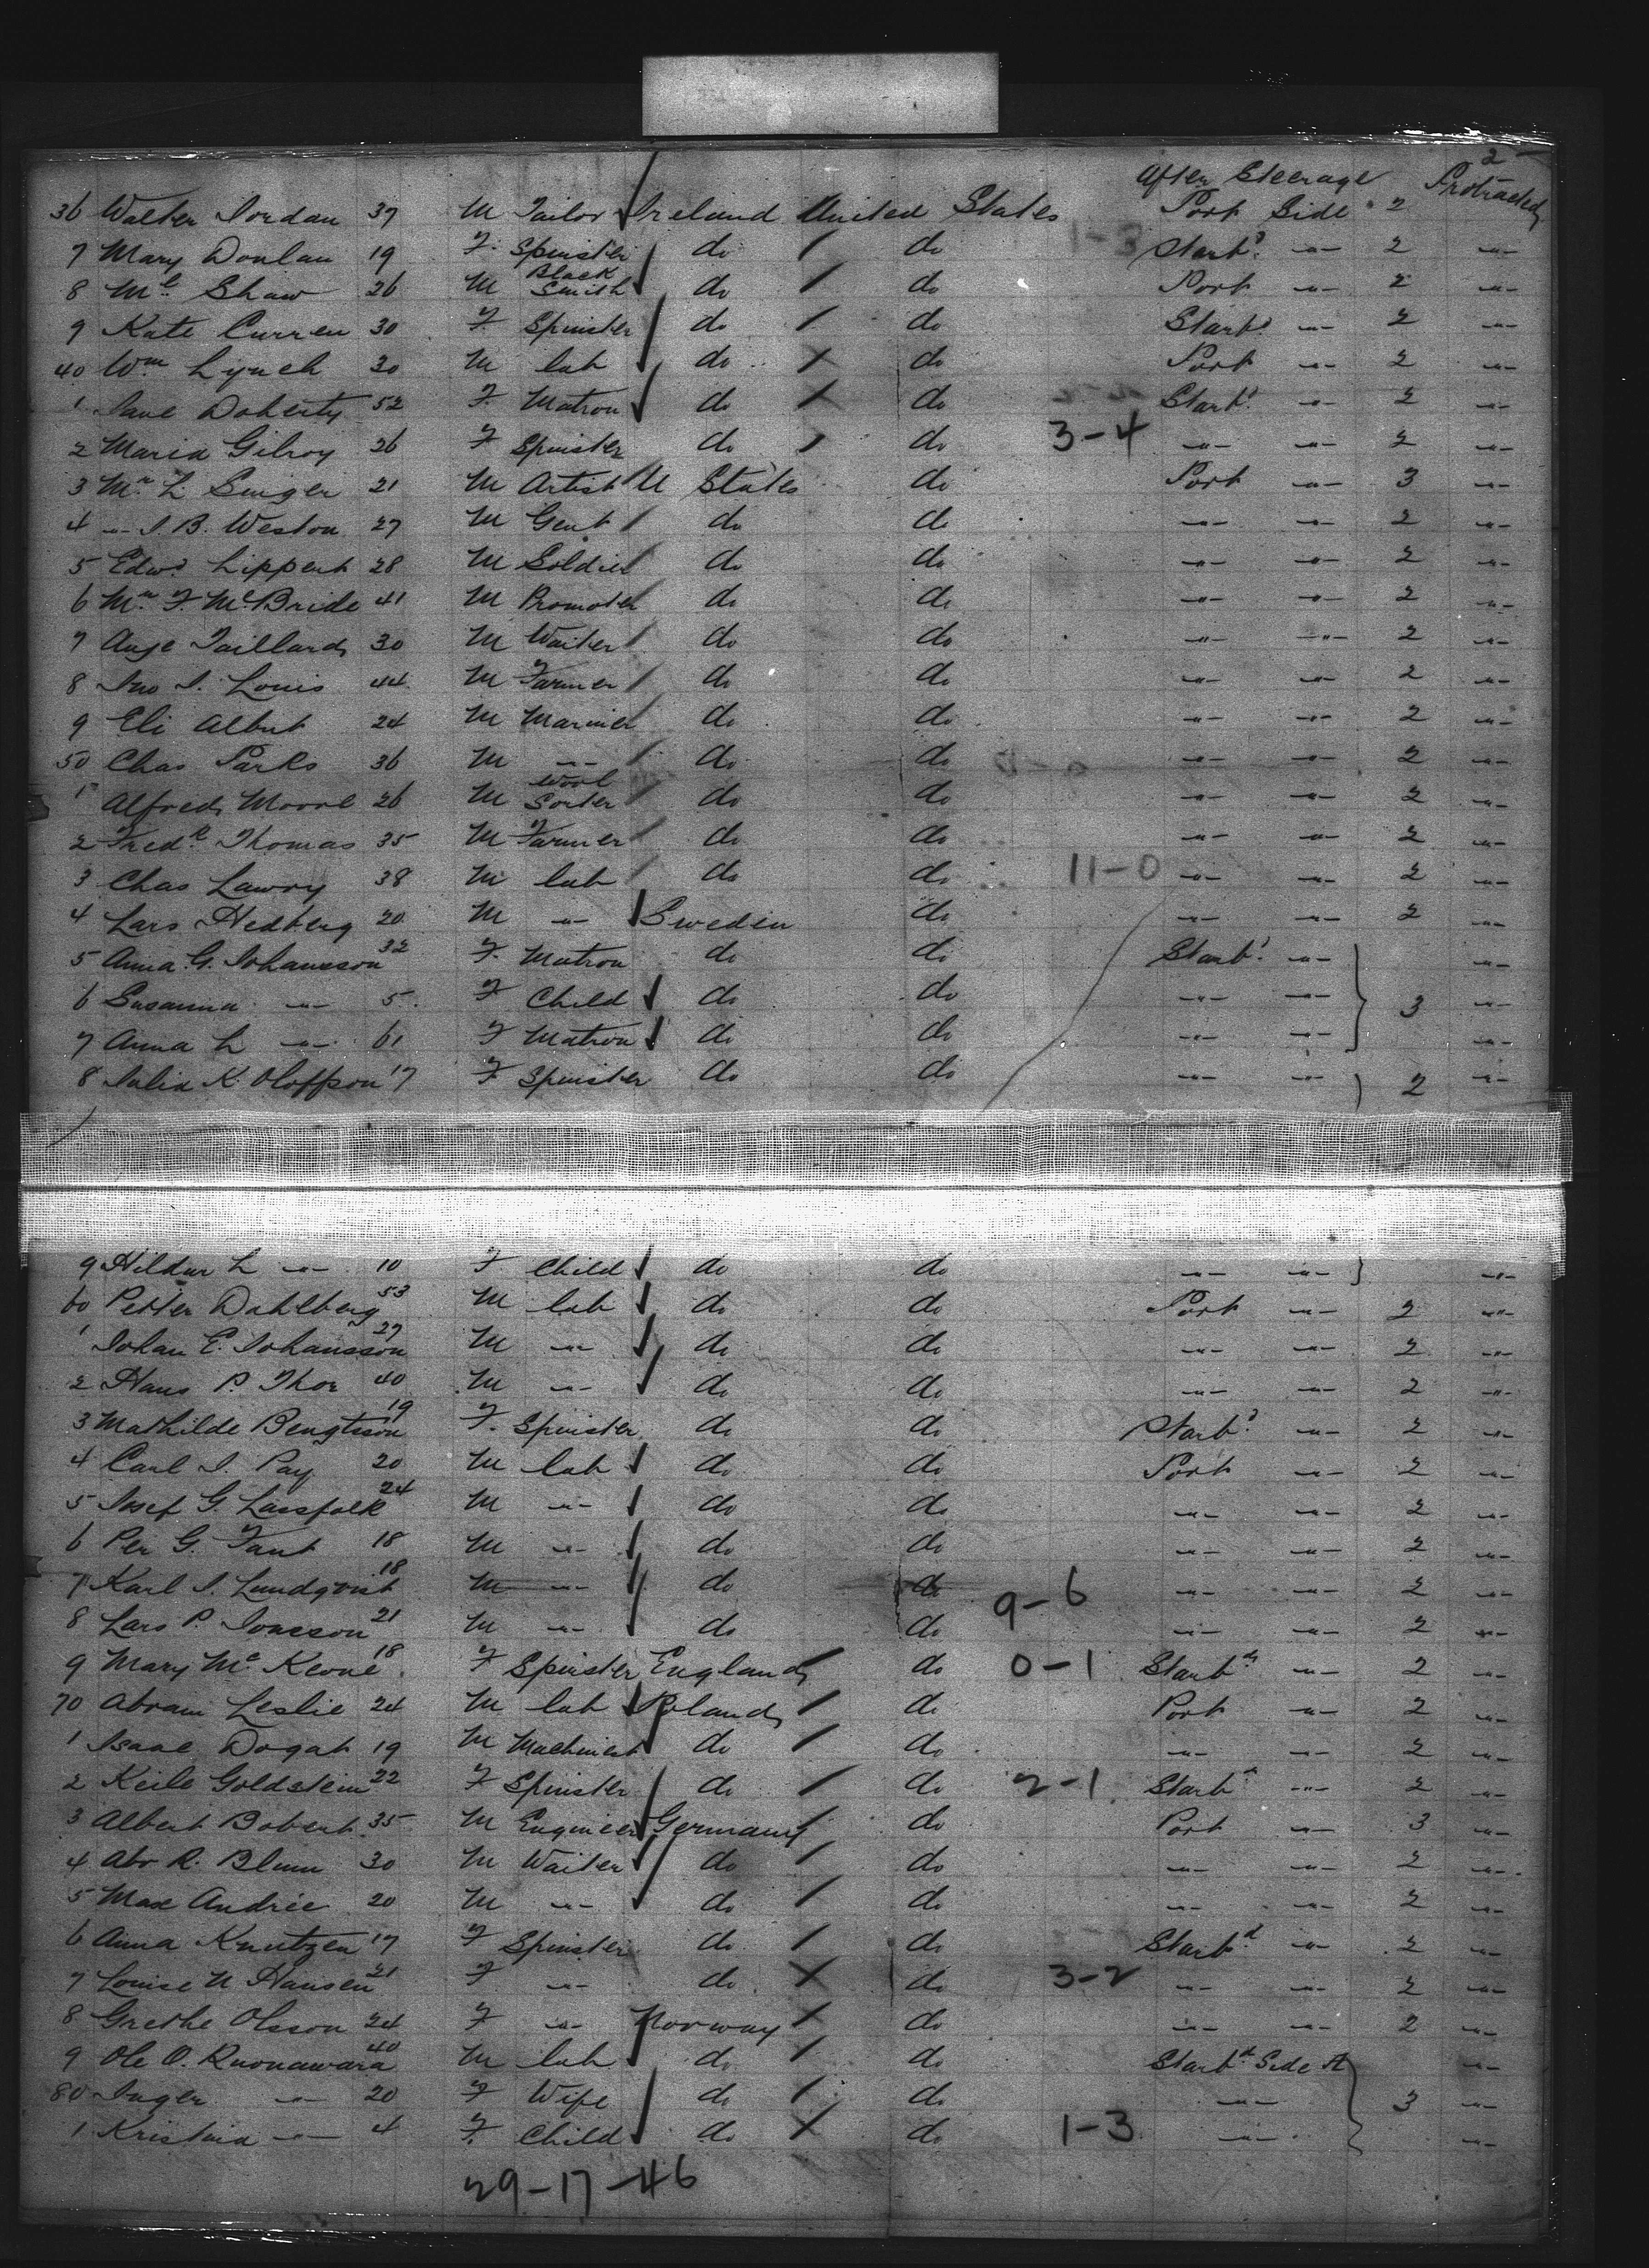 2
After Steerage Protracted
36 Walter Jordan 37 M Tailor Ireland United States Port Side 2
7 Mary Donlan 19 F. Spinster do do 1-3 Starbd. -"- 2 -"-
8 Ml. Shaw 26 M Black Smith do do Port -"- 2 -"-
9 Kate Curren 30 F. Spinster do do Starbd -"- 2 -"-
40 Wm Lynch 30 M lab do do Port -"- 2 -"-
1 Jane Doherty 52 F. Matron do do Starbd. -"- 2 -"-
2 Maria Gilroy 26 F Spinster do do 3-4 -"- -"- 2 -"-
3 Mr. L. Singer 21 M Artist U States do Port -"- 3 -"-
4 -"- J. B. Weston 27 M Gent do do -"- -"- 2 -"-
5 Edwd. Lippert 28 M Soldier do do -"- -"- 2 -"-
6 Mr. F. McBride 41 M Promoter do do -"- -"- 2 -"-
7 Ange Taillard 30 M Waiter do do -"- -"- 2 -"-
8 Jno J. Louis 44 M Farmer do do -"- -"- 2 -"-
9 Eli Albut 24 M Mariner do do -"- -"- 2 -"-
50 Chas Parks 36 M -"- do do -"- -"- 2 -"-
1 Alfred Moore 26 M Wool Sorter do do -"- -"- 2 -"-
2 Fredk Thomas 35 M Farmer do do -"- -"- 2 -"-
3 Chas Lawry 38 M lab do do 11-0 -"- -"- 2 -"-
4 Lars Hedberg 20 M -"- Sweden do -"- -"- 2 -"-
5 Anna G. Johansson 32 F. Matron do do Starbd. -"- -"-
6 Susanna -"- 5 F Child do do -"- -"- 3 -"-
7 Anna L -"- 61 F Matron do do -"- -"- -"-
8 Julia K. Oloffson 17 F Spinster do do -"- -"- 2 -"-
9 Hildur L -"- 10 F Child do do -"- -"- -"-
60 Petter Dahlberg 53 M lab do do Port -"- 2 -"-
1 Johan E. Johansson 27 M -"- do do -"- -"- 2 -"-
2 Hans P. Thor 40 M -"- do do -"- -"- 2 -"-
3 Mathilde Bengtsson 19 F. Spinster do do Starbd. -"- 2 -"-
4 Carl J. Pay 20 M lab do do Port -"- 2 -"-
5 Josef G. Lassfolk 24 M -"- do do -"- -"- 2 -"-
6 Per G. Fant 18 M -"- do do -"- -"- 2 -"-
7 Karl J. Lundqvist 18 M -"- do do 9-6 -"- -"- 2 -"-
8 Lars P. Jonsson 21 M -"- do do -"- -"- 2 -"-
9 Mary Mc Keone 18 F Spinster England do 0-1 Starbd -"- 2 -"-
70 Abram Leslie 24 M lab Poland do Port -"- 2 -"-
1 Isaac Dogat 19 M Machinist do do -"- -"- 2 -"-
2 Keile Goldstein 22 F Spinster do do 2-1 Starbd -"- 2 -"-
3 Albert Bobert 35 M Engineer Germany do Port -"- 3 -"-
4 Abr R. Blum 30 M Waiter do do -"- -"- 2 -"-
5 Max Andrée 20 M -"- do do -"- -"- 2 -"-
6 Anna Knutzen 17 F Spinster do do Starbd -"- 2 -"-
7 Louise N Hansen 21 F -"- do do 3-2 -"- -"- 2 -"-
8 Grethe Olsson 24 F -"- Norway do -"- -"- 2 -"-
9 Ole O. Ruonawara 40 M lab do do Starbd Side A -"-
80 Inger -"- 20 F Wife do do -"- 3 -"-
1 Kristina -"- 4 F. Child do do 1-3 -"- -"-
29-17-46